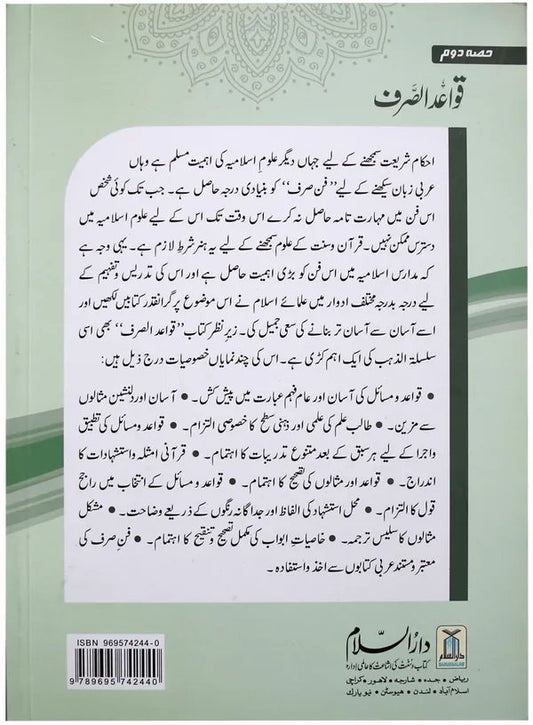 حصہ دوم
قواعد الصرف
احکام شریعت سمجھنے کے لیے جہاں دیگر علومِ اسلامیہ کی اہمیت مسلم ہے وہاں
عربی زبان سیکھنے کے لیے ”فن صرف“ کو بنیادی درجہ حاصل ہے۔ جب تک کوئی شخص
اس فن میں مہارت تامہ حاصل نہ کرے اس وقت تک اس کے لیے علوم اسلامیہ میں
دسترس ممکن نہیں۔ قرآن و سنت کے علوم سمجھنے کے لیے یہ ہنر شرطِ لازم ہے۔ یہی وجہ ہے
کہ مدارس اسلامیہ میں اس فن کو بڑی اہمیت حاصل ہے اور اس کی تدریس و تفہیم کے
لیے درجہ بدرجہ مختلف ادوار میں علمائے اسلام نے اس موضوع پر گرانقدر کتابیں لکھیں اور
اسے آسان سے آسان تر بنانے کی سعی جمیل کی۔ زیر نظر کتاب ”قواعد الصرف“ بھی اسی
سلسلۃ الذہب کی ایک اہم کڑی ہے۔ اس کی چند نمایاں خصوصیات درج ذیل ہیں:
● قواعد و مسائل کی آسان اور عام فہم عبارت میں پیش کش۔ ● آسان اور دلنشین مثالوں
سے مزین۔ ● طالب علم کی علمی اور ذہنی سطح کا خصوصی التزام۔ ● قواعد و مسائل کی تطبیق
واجرا کے لیے ہر سبق کے بعد متنوع تدریبات کا اہتمام۔ ● قرآنی امثلہ واستشہادات کا
اندراج۔ ● قواعد اور مثالوں کی تصحیح کا اہتمام۔ ● قواعد و مسائل کے انتخاب میں راجح
قول کا التزام۔ ● محل استشہاد کی الفاظ اور جداگانہ رنگوں کے ذریعے وضاحت۔ ● مشکل
مثالوں کا سلیس ترجمہ۔ ● خاصیاتِ ابواب کی مکمل تصحیح و تنقیح کا اہتمام۔ ● فن صرف کی
معتبر و مستند عربی کتابوں سے اخذ واستفادہ۔
ISBN 969574244-0
9 789695 742440
دارالسلام
DARUSSALAM
دارُالسلام
کتاب و سنت کی اشاعت کا عالمی ادارہ
ریاض • جدہ • شارجہ • لاہور • کراچی
اسلام آباد • لندن • ہیوسٹن • نیو یارک